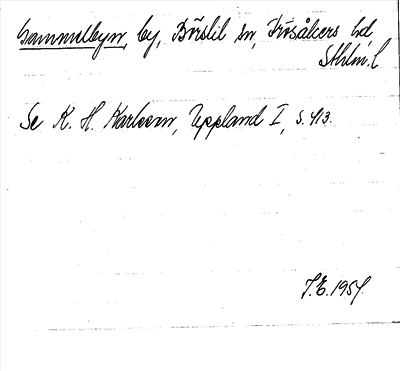 Gammelbyn, by, Börstil sn, Frösåkers hd
Sthlm. l
Se K. H. Karlsson, Uppland I, s. 413.
J.E. 1954.